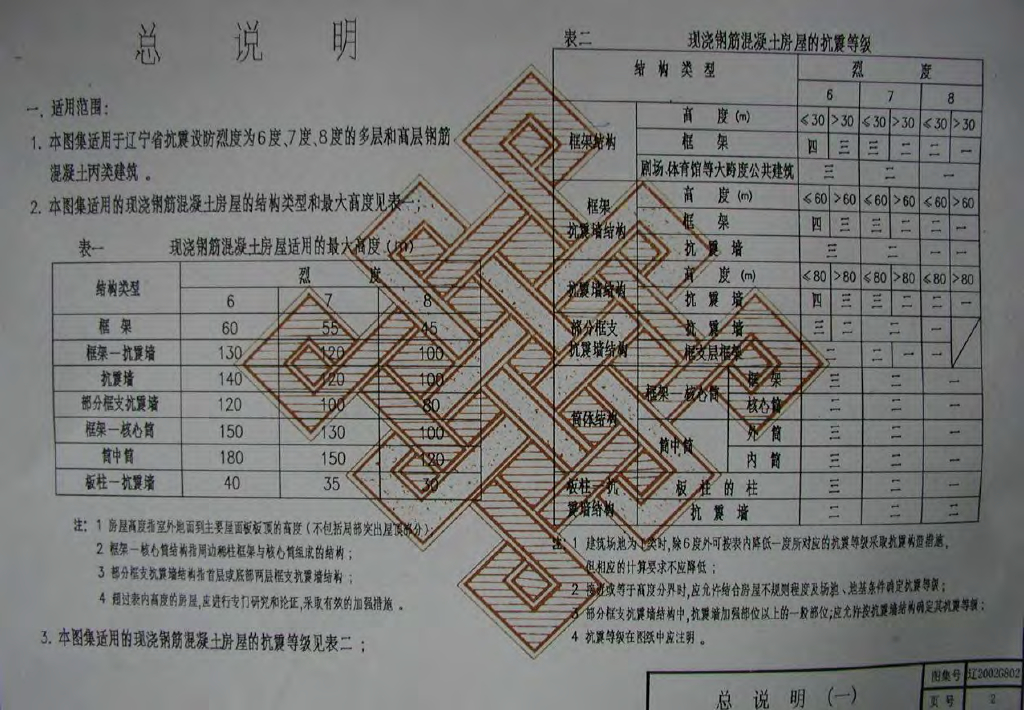 总 说 明
一. 适用范围:
1. 本图集适用于辽宁省抗震设防烈度为6度、7度、8度的多层和高层钢筋
混凝土丙类建筑 。
2. 本图集适用的现浇钢筋混凝土房屋的结构类型和最大高度见表一;
表一 现浇钢筋混凝土房屋适用的最大高度 (m)
结构类型 烈 度
6 7 8
框 架 60 55 45
框架一抗震墙 130 120 100
抗震墙 140 120 100
部分框支抗震墙 120 100 80
框架一核心筒 150 130 100
筒中筒 180 150 120
板柱一抗震墙 40 35 30
注: 1 房屋高度指室外地面到主要屋面板板顶的高度 (不包括局部突出屋顶部分);
2 框架一核心筒结构指周边稀柱框架与核心筒组成的结构 ;
3 部分框支抗震墙结构指首层或底部两层框支抗震墙结构 ;
4 超过表内高度的房屋,应进行专门研究和论证,采取有效的加强措施 。
3. 本图集适用的现浇钢筋混凝土房屋的抗震等级见表二 ;
表二 现浇钢筋混凝土房屋的抗震等级
结 构 类 型 烈 度
6 7 8
框架结构 高 度 (m) ≤30 >30 ≤30 >30 ≤30 >30
框 架 四 三 三 二 二 一
剧场、体育馆等大跨度公共建筑 三 二 一
框架
抗震墙结构 高 度 (m) ≤60 >60 ≤60 >60 ≤60 >60
框 架 四 三 三 二 二 一
抗 震 墙 三 二 一 一
抗震墙结构 高 度 (m) ≤80 >80 ≤80 >80 ≤80 >80
抗 震 墙 四 三 三 二 二 一
部分框支
抗震墙结构 抗 震 墙 三 二 二 一
框支层框架 二 二 一 一
筒体结构 框架 核心筒 框 架 三 二 一
核心筒 二 二 一
筒中筒 外 筒 三 二 一
内 筒 三 二 一
板柱一抗
震墙结构 板 柱 的 柱 三 二 一
抗 震 墙 二 二 二
注: 1 建筑场地为Ⅰ类时,除6度外可按表内降低一度所对应的抗震等级采取抗震构造措施,
但相应的计算要求不应降低 ;
2 接近或等于高度分界时,应允许结合房屋不规则程度及场地、地基条件确定抗震等级 ;
3 部分框支抗震墙结构中,抗震墙加强部位以上的一般部位,应允许按抗震墙结构确定其抗震等级 ;
4 抗震等级在图纸中应注明 。
总 说 明 (一)
图集号 辽2002G802
页 号 2